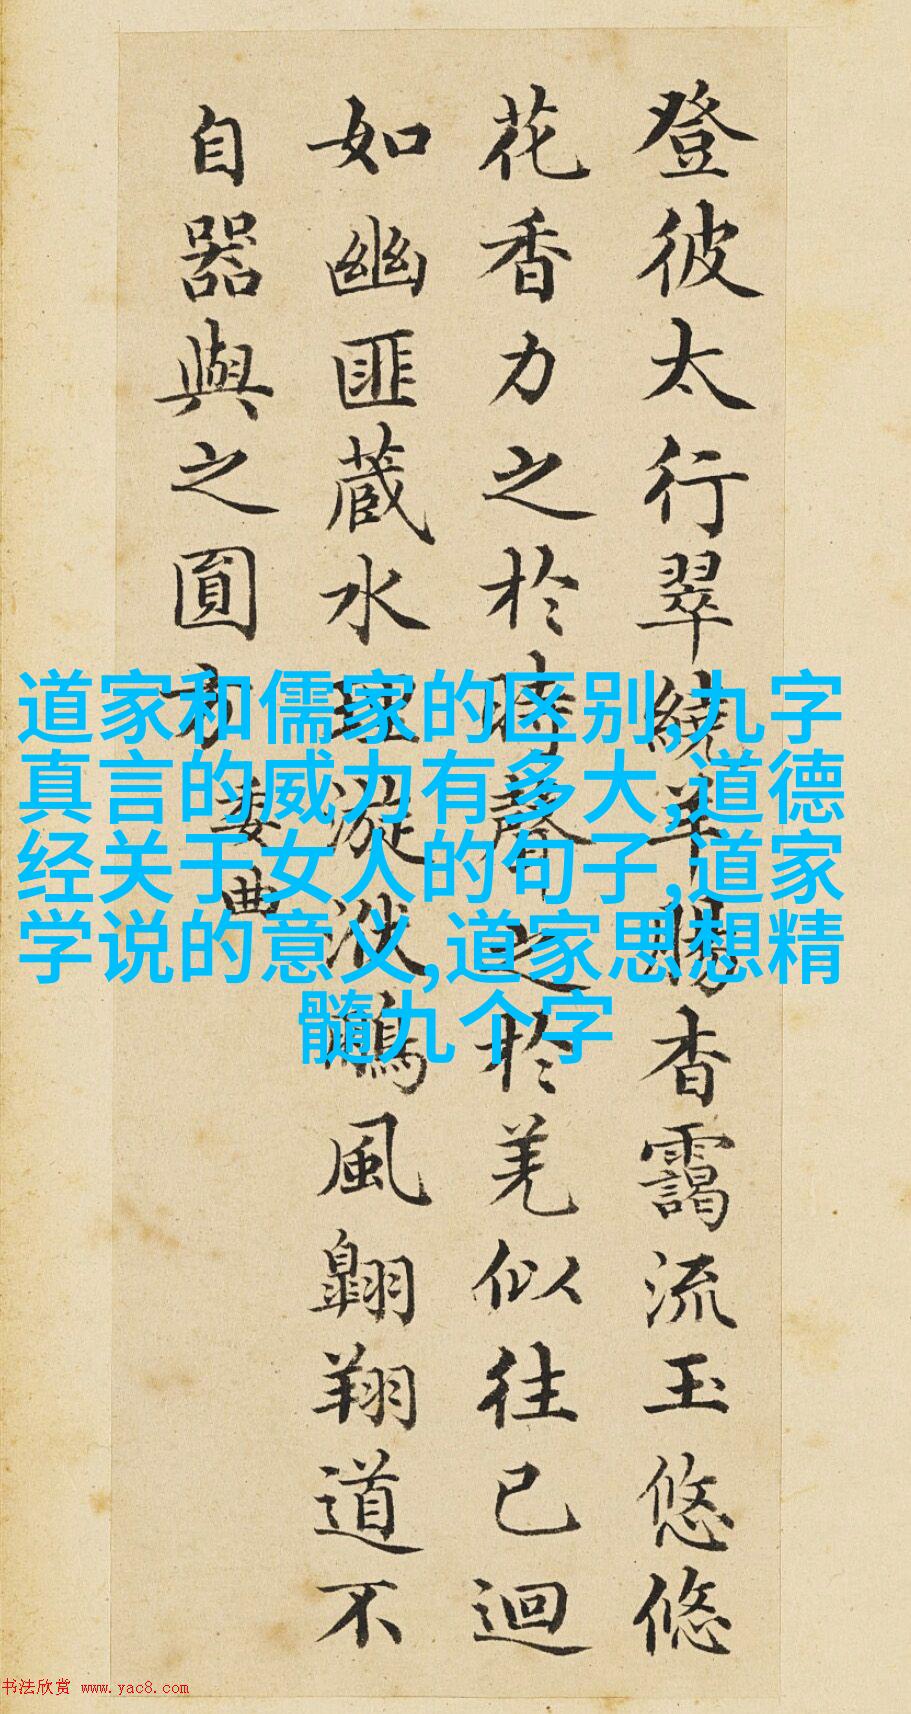 登彼太行翠繞羊腸杳靄流玉悠悠
花香力之於時聲之於羌似往已迴
如幽匪蔵水理漩洑鵬風翱翔道不
自器與之圓方
委曲
道家和儒家的区别,九字
真言的威力有多大,道德
经关于女人的句子,道家
学说的意义,道家思想精
髓九个字
书法欣赏 www.yac8.com